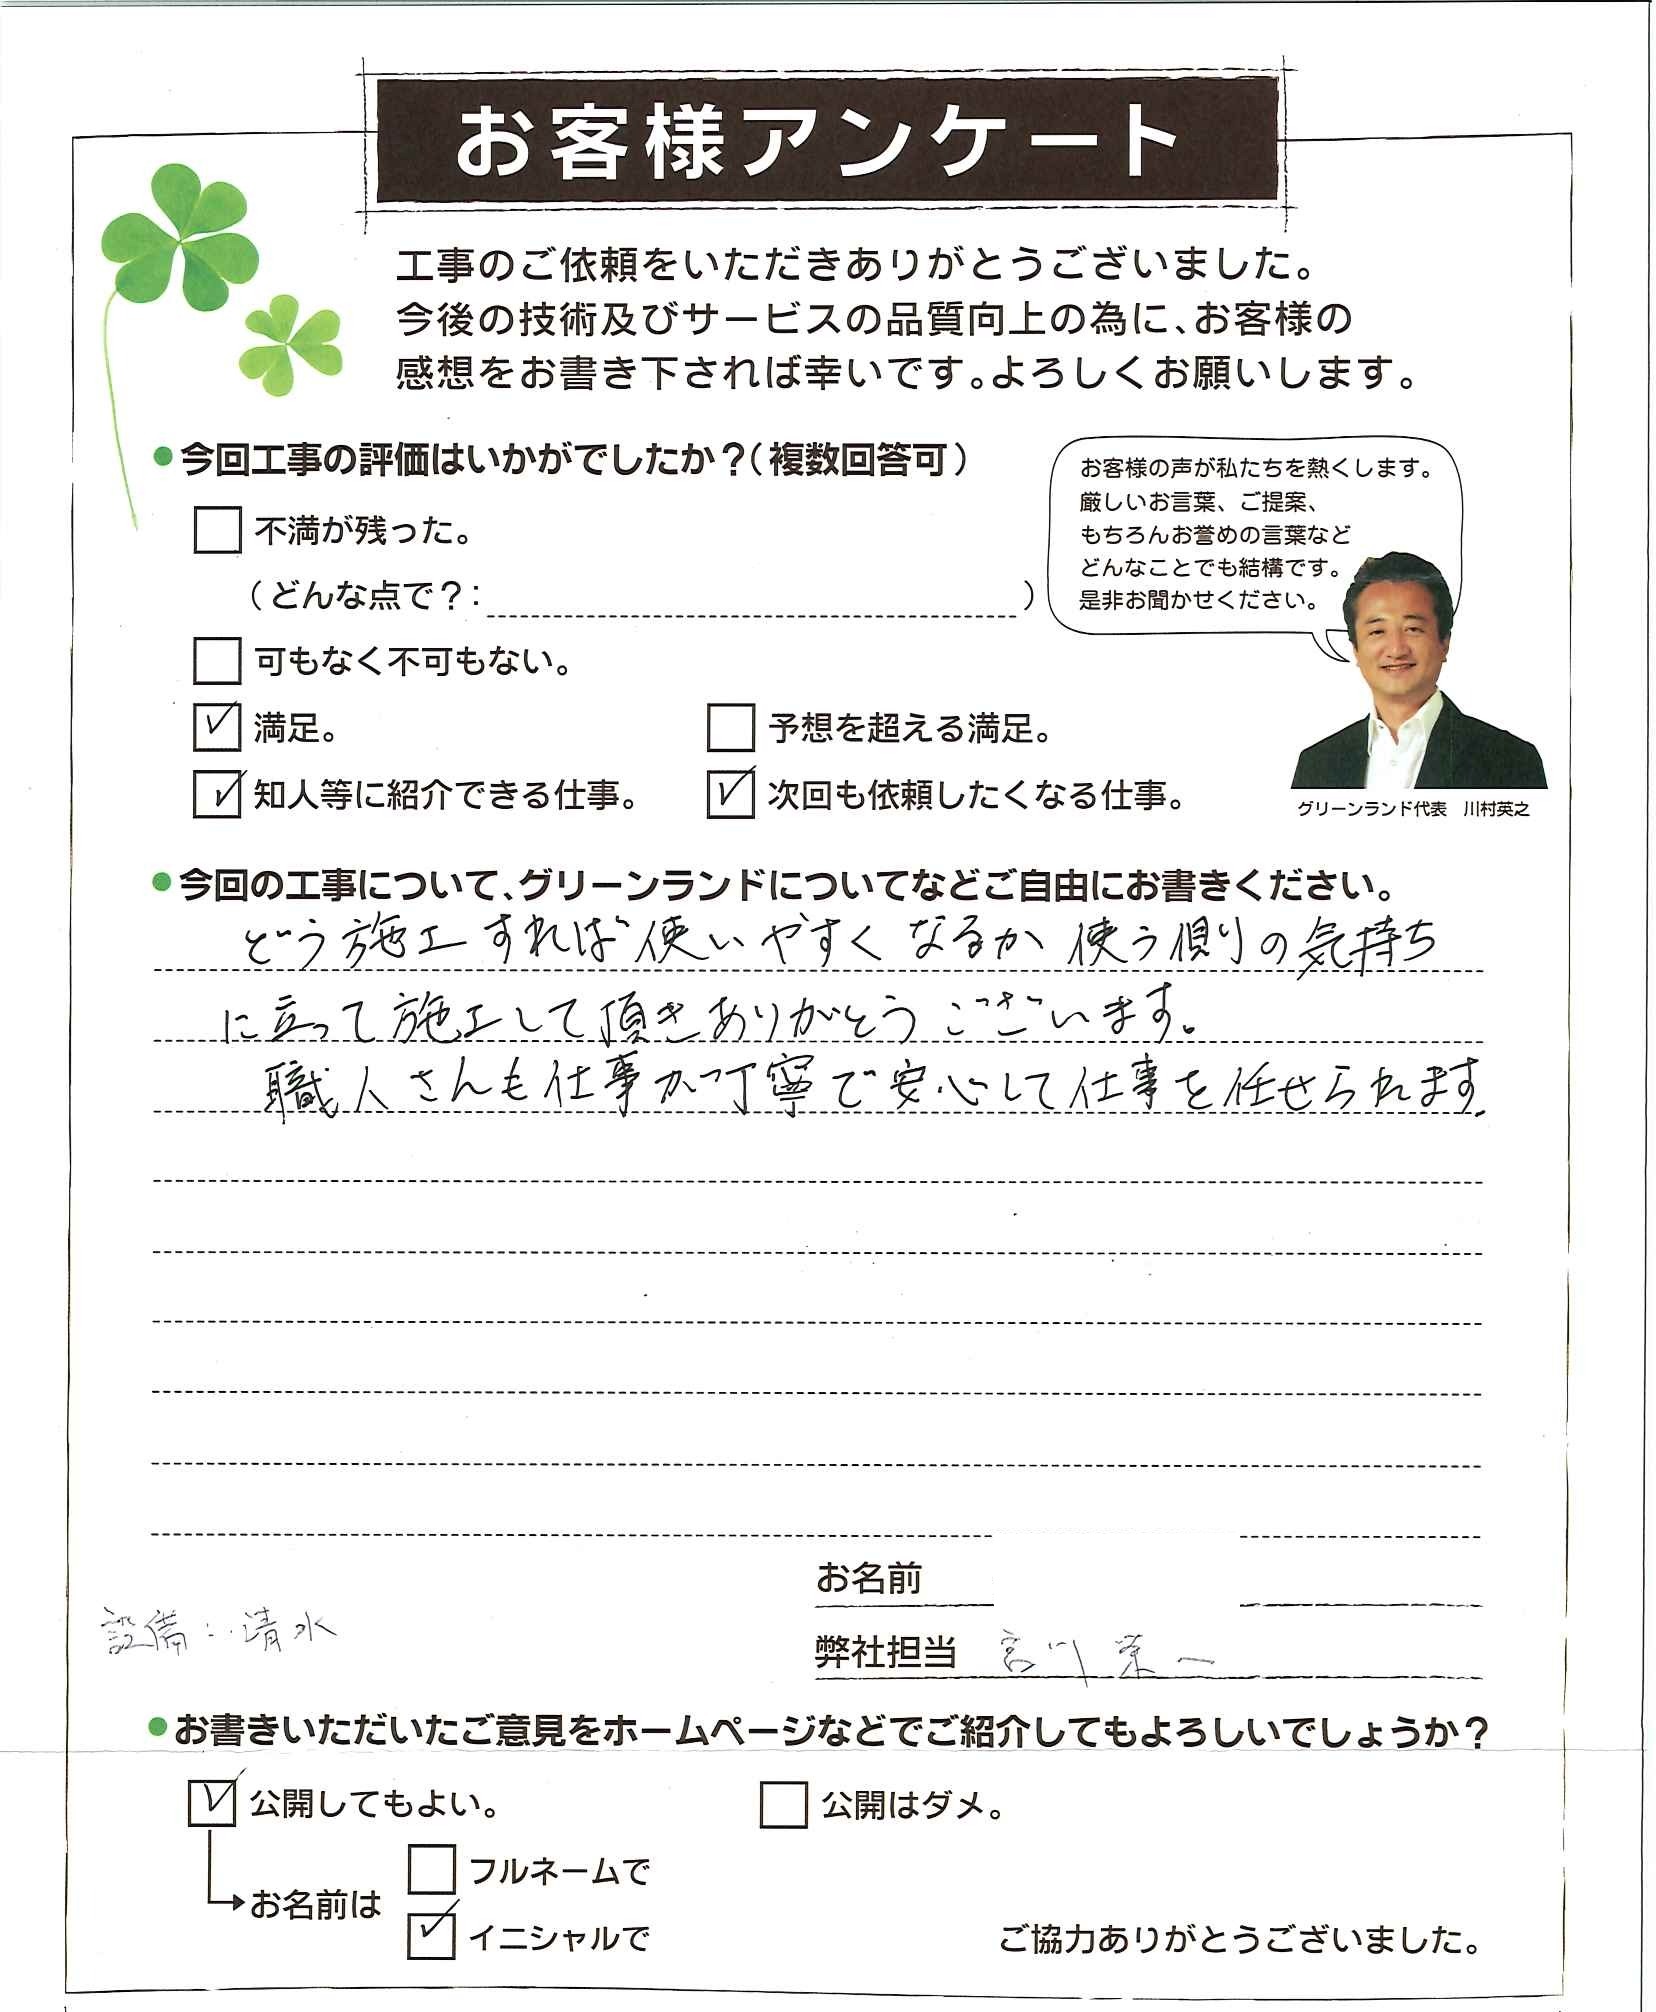 お客様アンケート
工事のご依頼をいただきありがとうございました。
今後の技術及びサービスの品質向上の為に、お客様の
感想をお書き下されば幸いです。よろしくお願いします。
●今回工事の評価はいかがでしたか？（複数回答可）
□ 不満が残った。
（どんな点で？： ）
□ 可もなく不可もない。
☑ 満足。
□ 予想を超える満足。
☑ 知人等に紹介できる仕事。
☑ 次回も依頼したくなる仕事。
お客様の声が私たちを熱くします。
厳しいお言葉、ご提案、
もちろんお誉めの言葉など
どんなことでも結構です。
是非お聞かせください。
グリーンランド代表 川村英之
●今回の工事について、グリーンランドについてなどご自由にお書きください。
どう施工すれば使いやすくなるか使う側の気持ち
に立って施工して頂きありがとうございます。
職人さんも仕事が丁寧で安心して仕事を任せられます.
お名前
設備：清水
弊社担当 宮川栄一
●お書きいただいたご意見をホームページなどでご紹介してもよろしいでしょうか？
☑ 公開してもよい。
□ 公開はダメ。
お名前は
□ フルネームで
☑ イニシャルで
ご協力ありがとうございました。